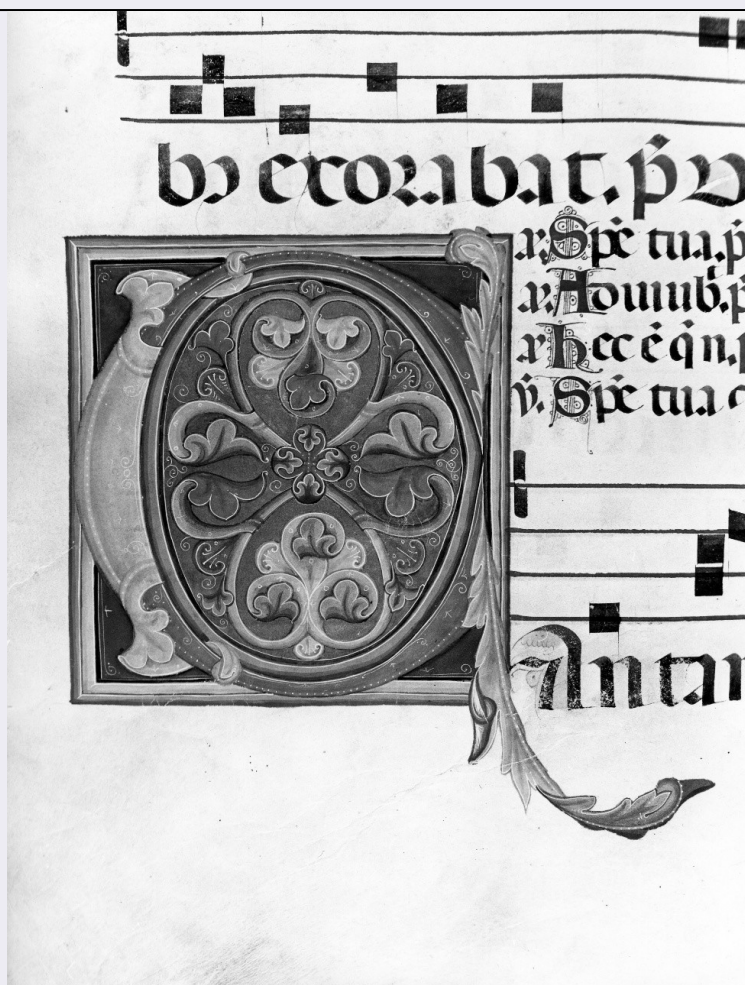 bꝯ exorabat. p̄
a. Spē tua. p̄
a. Adiuuīb. p̄
a. Hec ē q̄ n.
v. Spē tua
Q
Antan